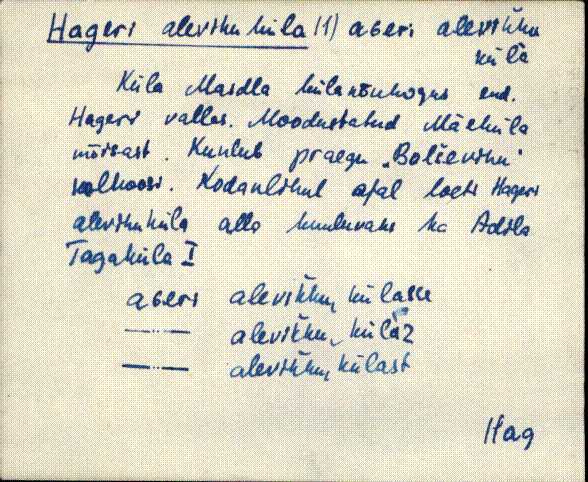 Hageri aleviku küla (1) aɢeri aleviк̆ku
külà
Küla Maidla külanõukogus end.
Hageri vallas. Moodustatud Mäeküla
mõisast. Kuulub praegu „Bolševiku"
kolhoosi. Kodanlikul ajal loeti Hageri
alevikuküla alla kuuluvaks ka Adila
Tagaküla I
aɢeri aleviк̆ku, külasse
—··— aleviк̆ku, külàz
—··— aleviк̆ku, külast
Hag